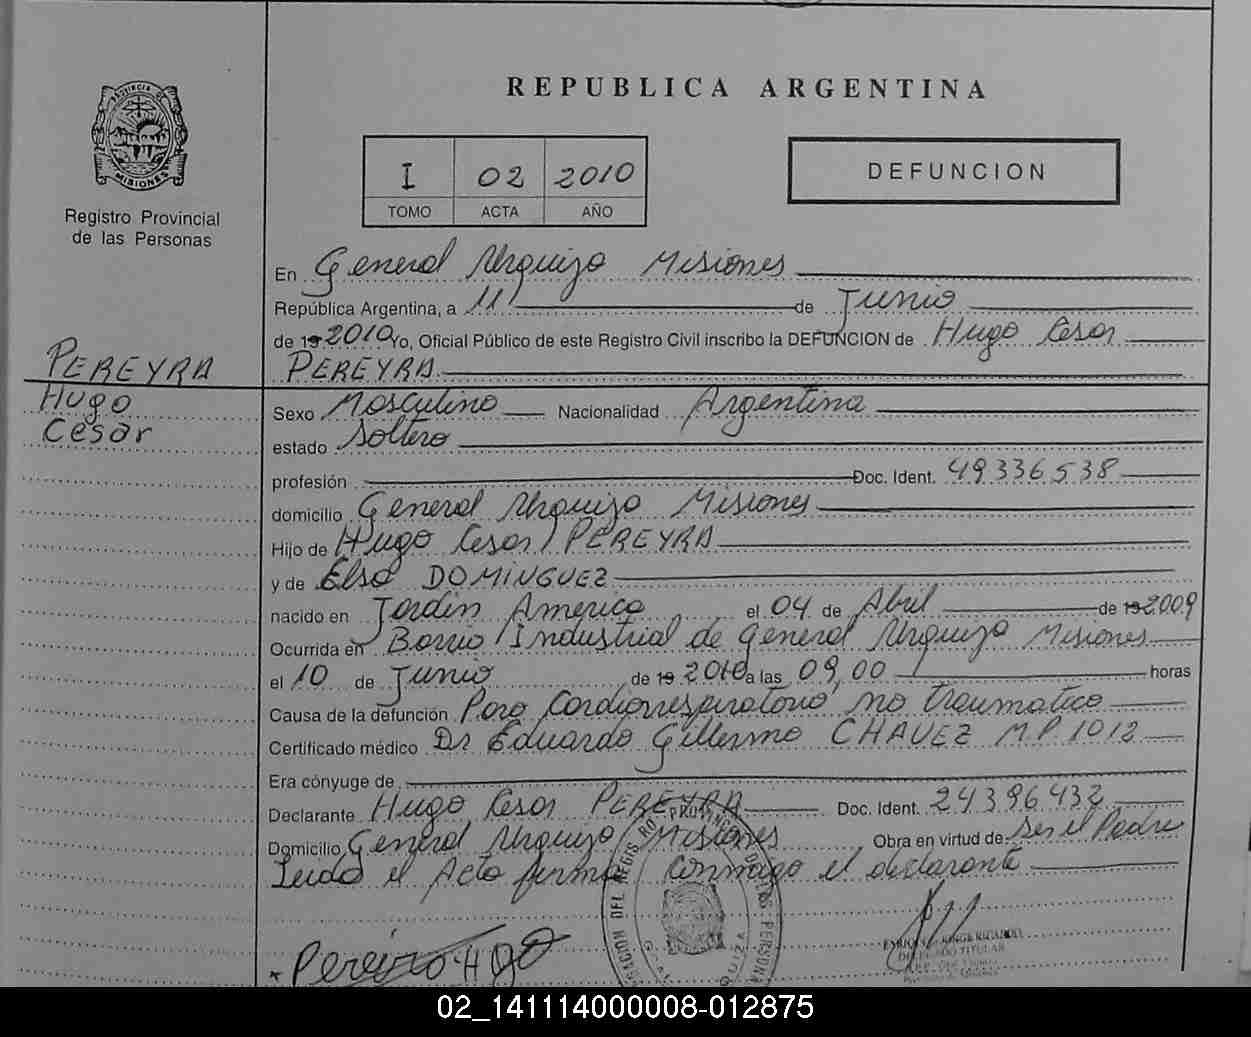 REPUBLICA ARGENTINA
PROVINCIA DE
MISIONES
Registro Provincial
de las Personas
I 02 2010
TOMO ACTA AÑO
DEFUNCION
En General Urquiza Misiones
República Argentina, a 11 de Junio
de 19 2010 Yo, Oficial Público de este Registro Civil inscribo la DEFUNCION de Hugo Cesar
PEREYRA
PEREYRA
Hugo
Cesar
Sexo Masculino Nacionalidad Argentina
estado Soltero
profesión Doc. Ident. 49336538
domicilio General Urquiza Misiones
Hijo de Hugo Cesar PEREYRA
y de Elsa DOMINGUEZ
nacido en Jardin America el 04 de Abril de 19 2009
Ocurrida en Barrio Industrial de General Urquiza Misiones
el 10 de Junio de 19 2010 a las 09,00 horas
Causa de la defunción Paro Cardiorrespiratorio no traumatico
Certificado médico Dr Eduardo Gillermo CHAVEZ M.P. 1012
Era cónyuge de
Declarante Hugo Cesar PEREYRA Doc. Ident. 24396432
Domicilio General Urquiza Misiones Obra en virtud de Ser el Padre
Leida el Acta firma Conmigo el declarante
Pereira H
02_141114000008-012875